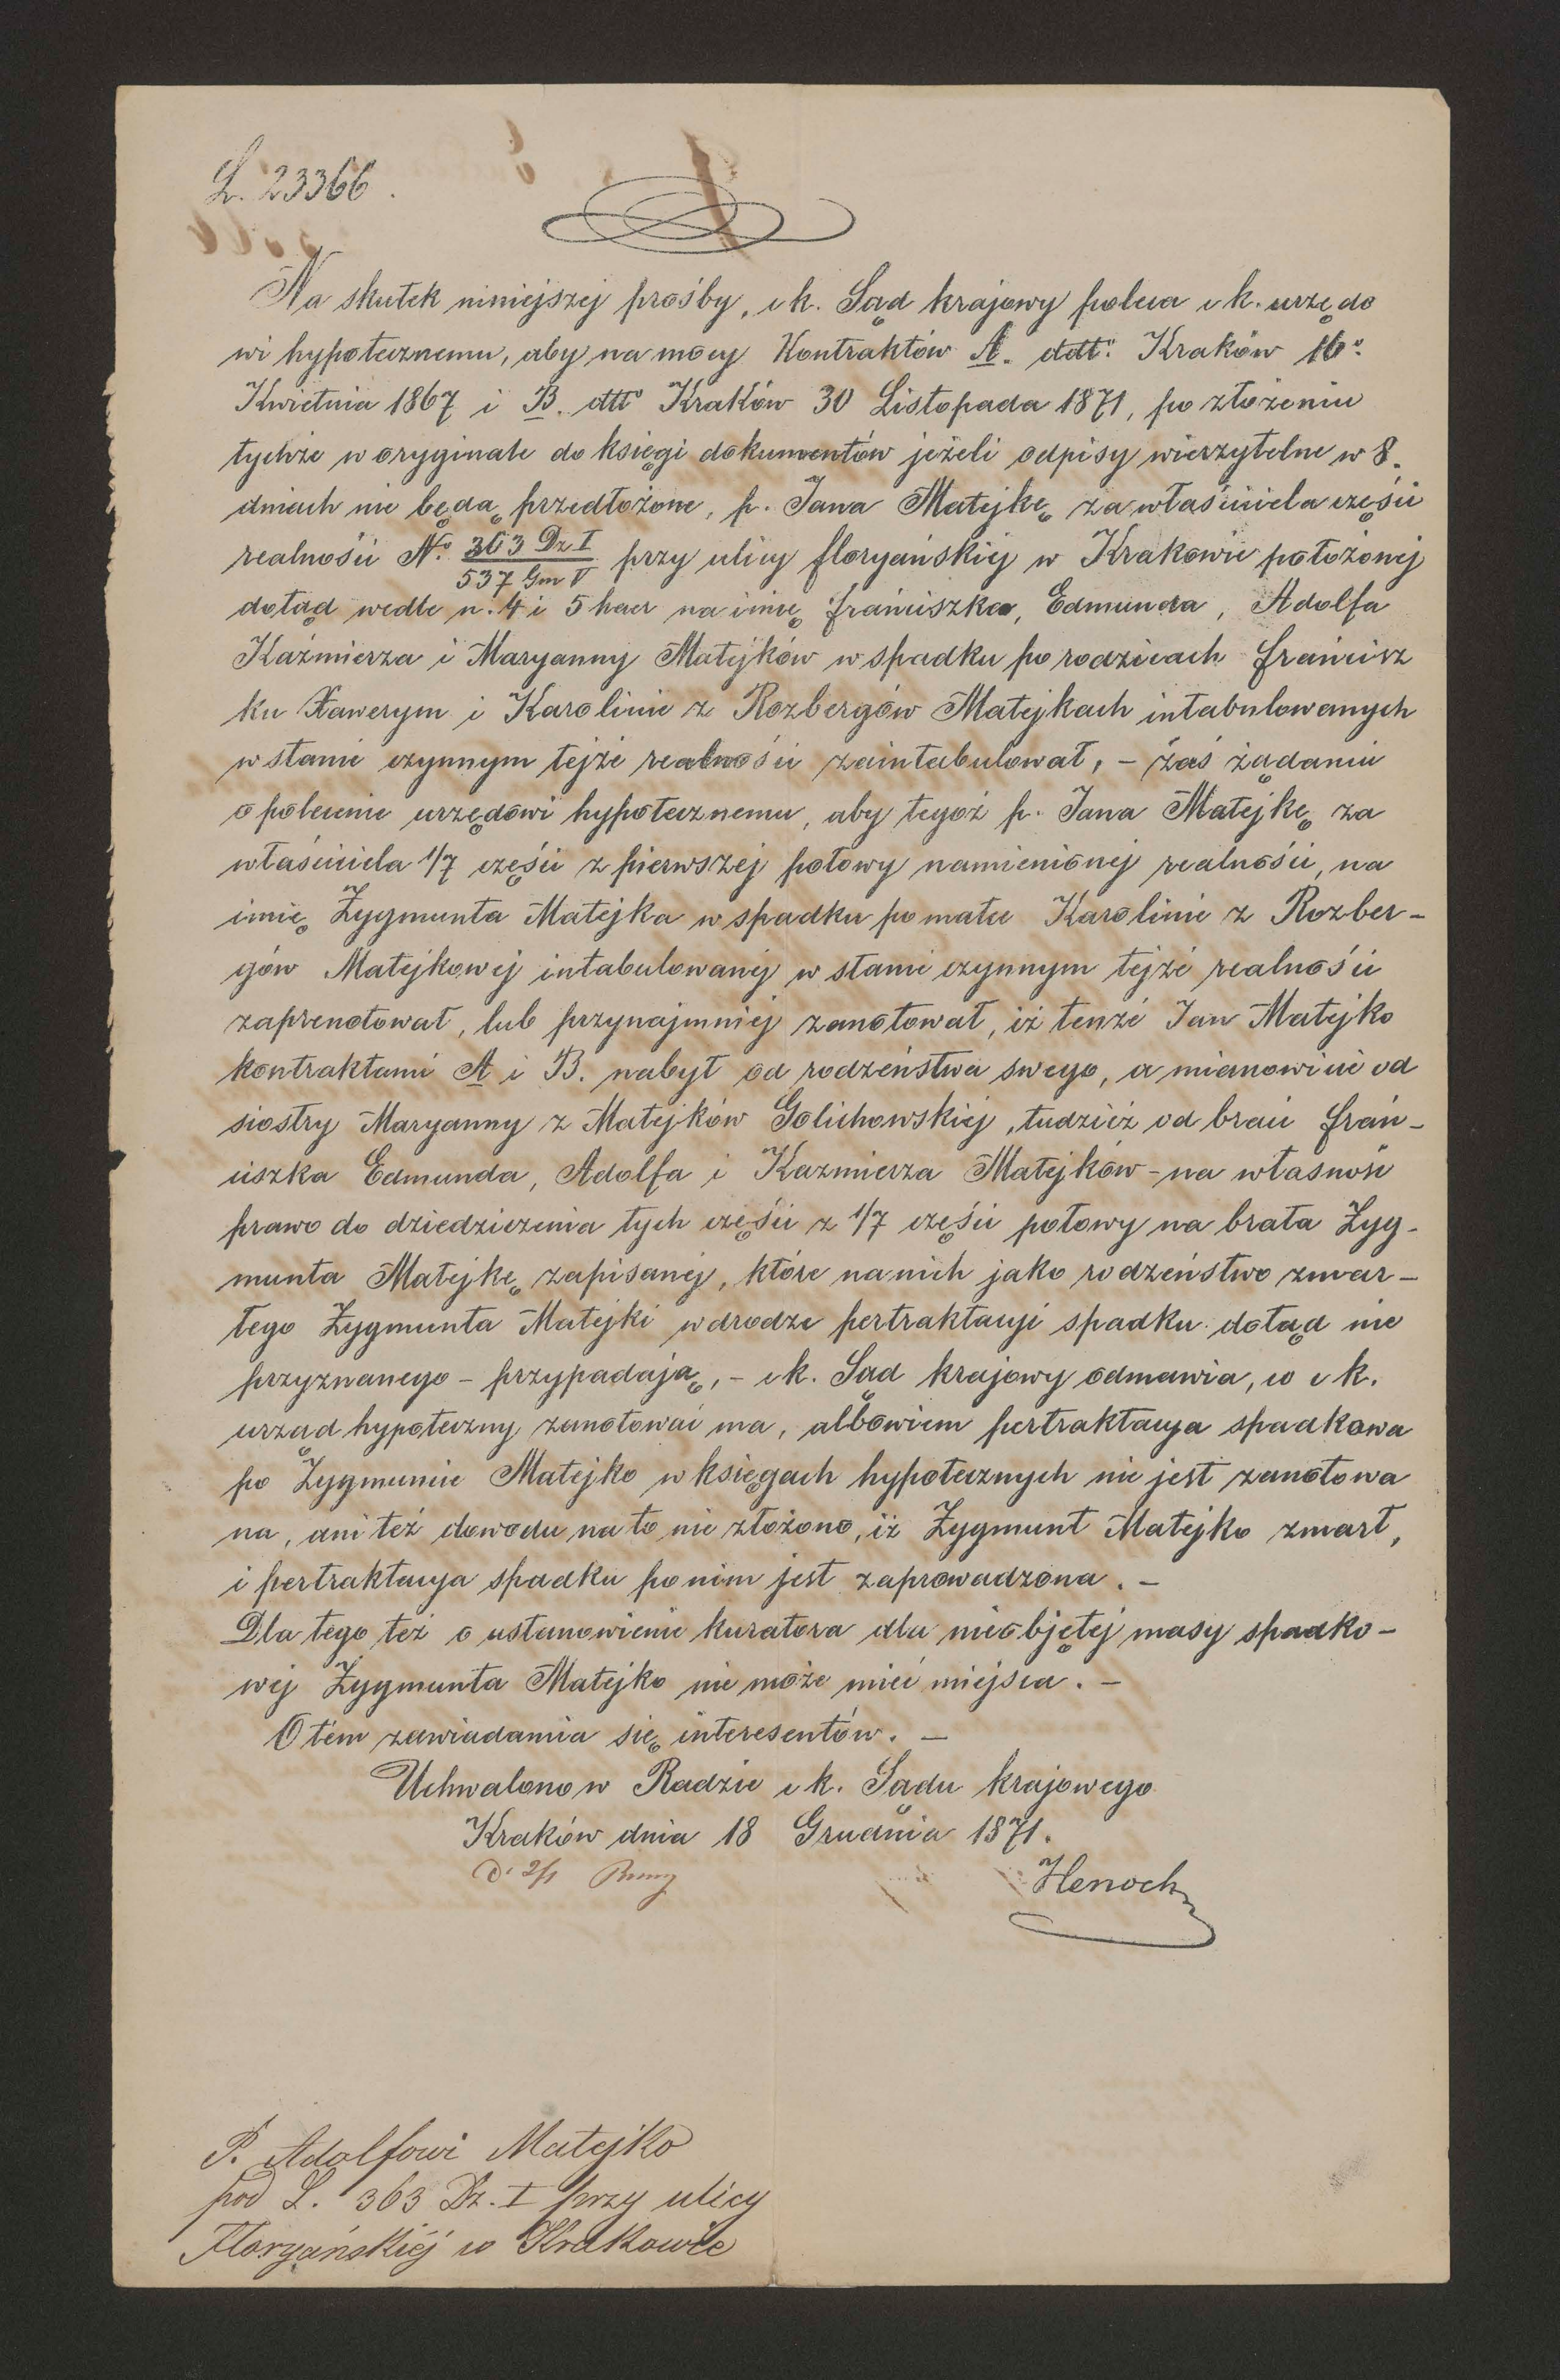 L. 23366.
Na skutek niniejszej prośby, c k. Sąd krajowy poleca c k. urzędo
wi hypotecznemu, aby na mocy Kontraktów A. ddtt: Kraków 16º
Kwietnia 1867 i B. dtto Kraków 30 Listopada 1871, po złożeniu
tychże w oryginale do księgi dokumentów jeżeli odpisy wierzytelne w 8.
dniach nie będą przedłożone, p. Jana Matejkę za właściciela części
realności Nº 363 Dz I / 537 Gm V przy ulicy floryańskiej w Krakowie położonej
dotąd wedle n. 4 i 5 haer na imię franciszka, Edmunda, Adolfa
Kaźmierza i Maryanny Matejków w spadku po rodzicach francisz
ku Xawerym i Karolinie z Rozbergów Matejkach intabulowanych
w stanie czynnym tejże realności zaintabulował, – zaś żądaniu
o polecenie urzędowi hypotecznemu, aby tegoż p. Jana Matejkę za
właściciela 1/7 części z pierwszej połowy namienionej realności, na
imię Zygmunta Matejka w spadku po matce Karolinie z Rozber-
gów Matejkowej intabulowanej w stanie czynnym tejże realności
zaprenotował, lub przynajmniej zanotował, iż tenże Jan Matejko
kontraktami A i B. nabył od rodzeństwa swego, a mianowicie od
siostry Maryanny z Matejków Golichowskiej, tudzież od braci fran-
ciszka Edmunda, Adolfa i Kazmierza Matejków – na własność
prawo do dziedziczenia tych części z 1/7 części połowy na brata Zyg-
munta Matejkę zapisanej, które na nich jako rodzeństwo zmar-
łego Zygmunta Matejki w drodze pertraktacyi spadku dotąd nie
przyznanego – przypadają, – c k. Sąd krajowy odmawia, co c k.
urząd hypoteczny zanotować ma, albowiem pertraktacya spadkowa
po Zygmuncie Matejko w księgach hypotecznych nie jest zanotowa
na, ani też dowodu na to nie złożono, iż Zygmunt Matejko zmarł,
i pertraktacya spadku po nim jest zaprowadzona. –
Dla tego też o ustanowienie kuratora dla nieobjętej masy spadko-
wej Zygmunta Matejko nie może mieć miejsca. –
O tém zawiadamia się interesentów. –
Uchwalono w Radzie c k. Sądu krajowego
Kraków dnia 18 Grudnia 1871.
Henoch
P. Adolfowi Matejko
pod L. 363 Dz. I przy ulicy
Floryańskiéj w Krakowie